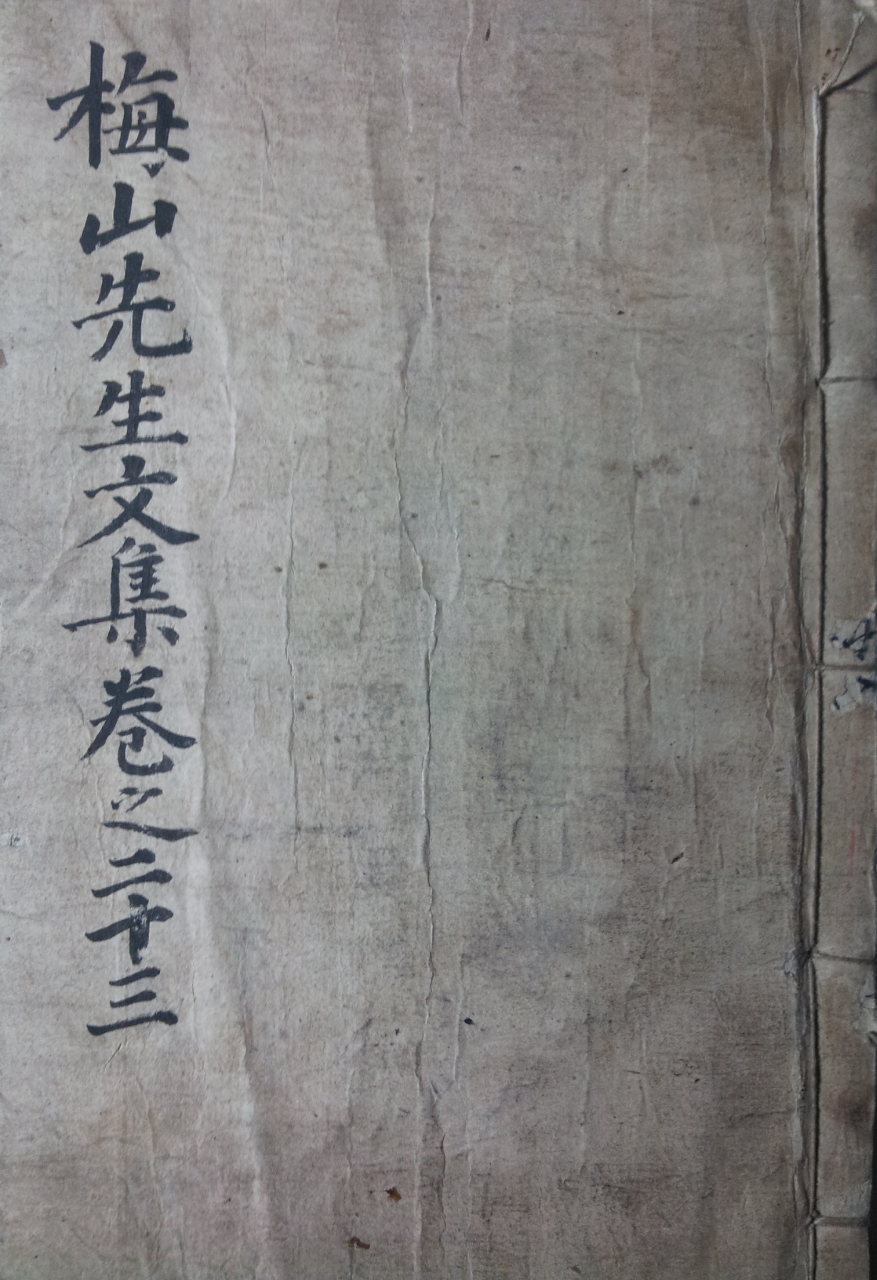 梅山先生文集卷之二十三